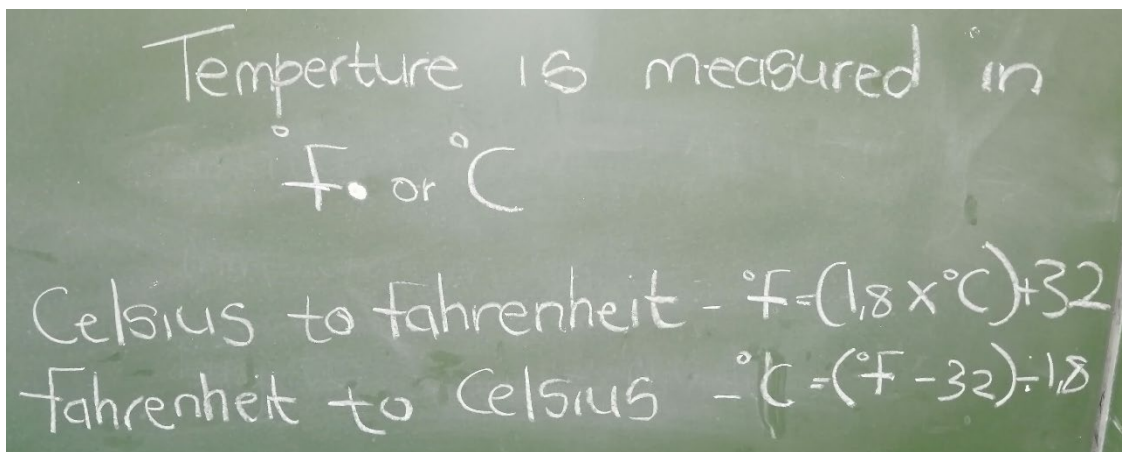 Temperture is measured in
°F. or °C
Celsius to fahrenheit - °F=(1,8 x °C)+32
Fahrenheit to Celsius - °C=(°F - 32)÷1,8